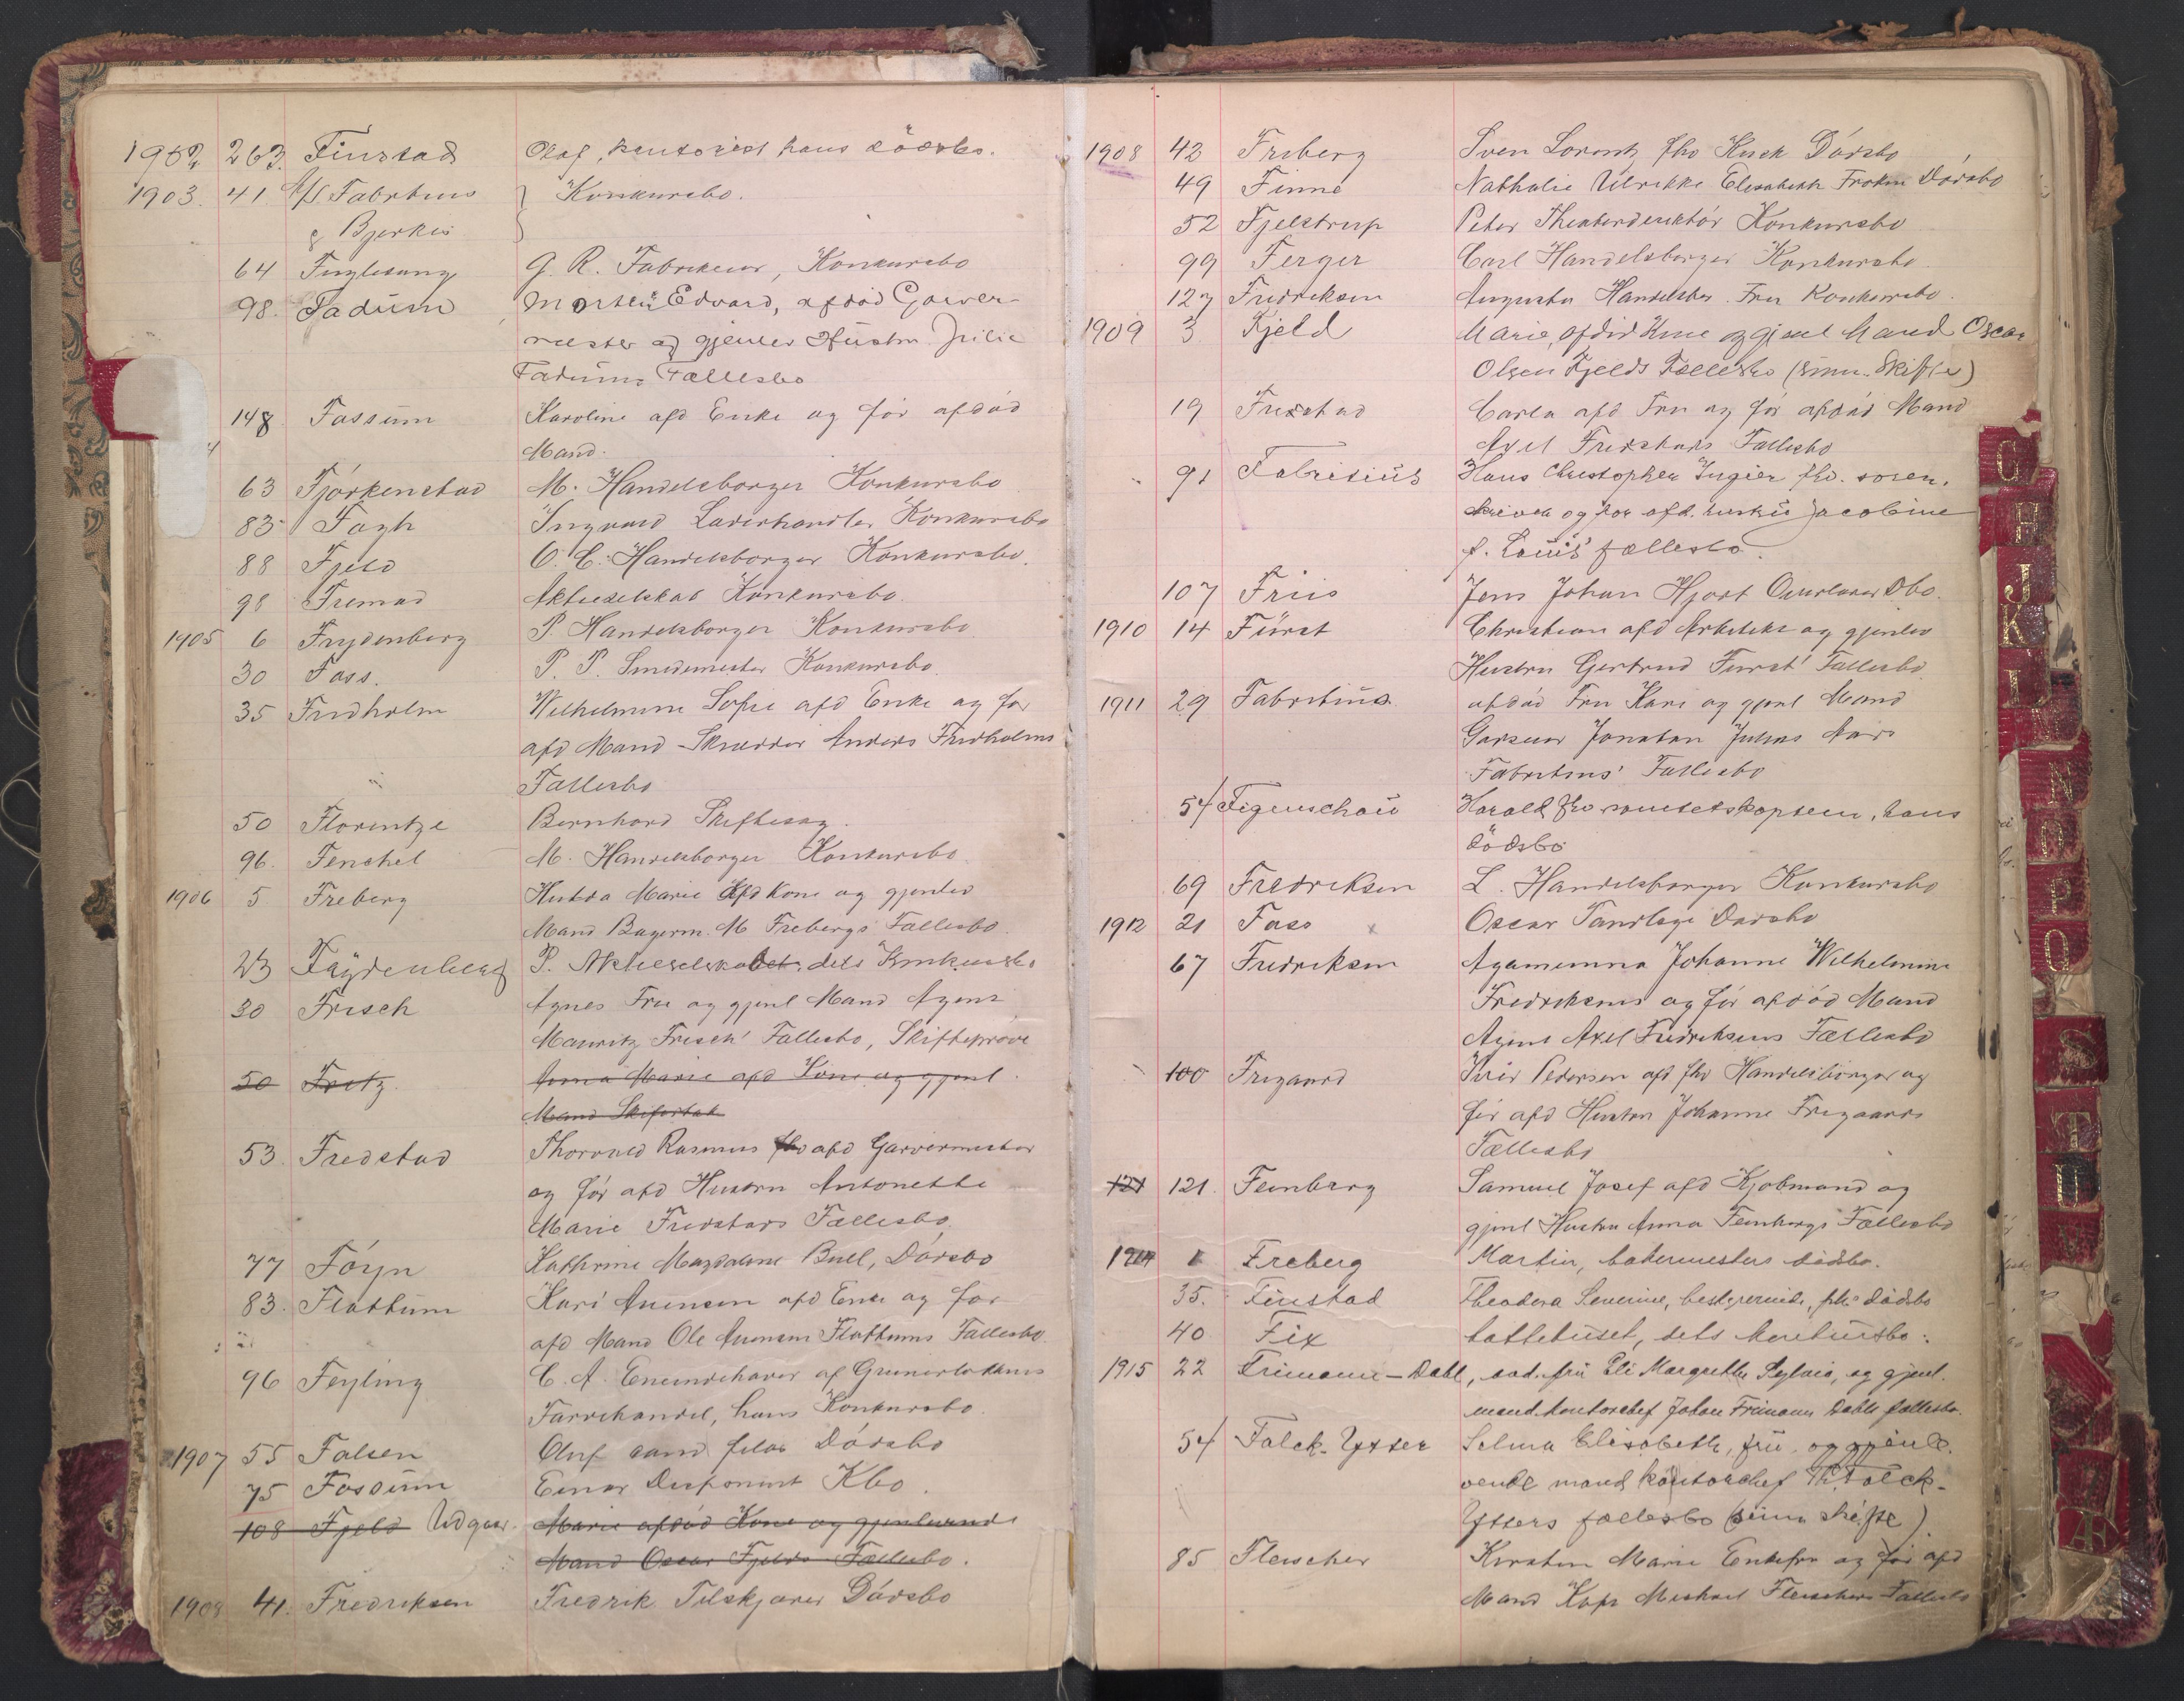 1902 263. Finstad Olaf, kontorist hans dödsbo.
1903. 41 A/S Fabritius Konkursbo.
& Bjerkes
64 Fuglesang G. R. Fabrikeier, Konkursbo
98. Fadum Morten Edvard, afdöd Garver-
mester og gjenlev Hustru Julie
Fadums Fællesbo
148. Fossum Karoline afd Enke og før afdød
Mand.
63 Fjørkenstad M. Handelsborger Konkursbo
83 Fagh Ingvard Læderhandler Konkursbo
88 Fjeld O. C. Handelsborger Konkursbo.
98 Fremad Aktieselskab Konkursbo.
1905 6 Frydenberg P. Handelsborger Konkursbo
30 Foss. P. P. Smedemester Konkursbo.
35 Fridholm Wilhelmine Sofie afd Enke og før
afd Mand Skrædder Anders Fridholms
Fællesbo
50 Florentze Bernhard Skiftesag.
96. Fenchel M. Handelsborger Konkursbo
1906 5 Freberg Hulda Marie Afd Kone og gjenlev
Mand Bagerm. M Frebergs Fællesbo.
23 Frydenberg P. Aktieselskabet, dets Konkursbo
30 Frisch Agnes Fru og gjenl Mand Agent
Mauritz Frisch' Fællesbo, Skifteprøve
50 Fritz Anna Marie afd Kone og gjenl
Mand
53. Fredstad Thorvald Rasmus fhv afd Garvermester
og før afd Hustru Antonette
Marie Fredstads Fællesbo
77 Föyn Kathrine Magdalene Bull, Dödsbo
83. Flattum Kari Amensen afd Enke og før
afd Mand Ole Amensen Flattums Fællesbo
96 Feyling C. A. Eneindehaver af Grünerløkkens
Farvehandel, hans Konkursbo.
1907 55 Falsen Oluf cand. filos Dödsbo
75 Fossum Einar Disponent Kbo.
108 Fjeld Udgaar. Marie afdöd Kone og gjenlevende
Mand Oscar Fjelds Fællesbo.
1908 41. Fredriksen Fredrik Tilskjærer Dödsbo
1908 42 Friberg Sven Lorentz fhv Kusk Dödsbo
49 Finne Nathalie Ulrikke Elisabeth Frøken Dödsbo
52 Fjelstrup Peter Theaterdirektör Konkursbo
99 Ferger Carl Handelsborger Konkursbo
127 Fredriksen Augusta Handelsbg. Fru Konkursbo.
1909 3 Fjeld Marie, afdöd Kone og gjenl Mand Oscar
Olsen Fjelds Fællesbo (Sum. Skifte)
19 Fredstad Carla afd Fru og før afdød Mand
Axel Fredstads Fællesbo
91 Fabritius Hans Christopher Ingier fhv. soren-
skriver og før afd. hustru Jacobine
f. Louis' fællesbo.
107 Friis Jens Johan Hjort Overlærer Dbo.
1910 14 Fürst Christian afd Arkitekt og gjenlev
Hustru Gertrud Fürst' Fællesbo
1911 29 Fabritius. afdöd Fru Kari og gjenl Mand
Garver Jonatan Julius
Fabritius' Fællesbo
54 Figenschau Harald fhv kaptein, hans
dödsbo
69 Fredriksen L. Handelsborger Konkursbo
1912 21 Foss x Oscar Tandlæge Dødsbo
67 Fredriksen Agamemna Johanne Wilhelmine
Fredriksens og før afdød Mand
Agent Axel Fredriksens Fællesbo
100 Frigaard Pedersen afd fhv Handelsborger og
før afd Hustru Johanne Frigaards
Fællesbo
121 121. Feinberg Samuel Josef afd Kjøbmand og
gjenl Hustru Anna Feinbergs Fællesbo
1914 1 Freberg Martin, bakermesters dødsbo.
35. Finstad Theodora Severine, bestyrerinde, dödsbo
40 Fix kaffehuset, dets konkursbo.
1915 22 Frimann-Dahl, avd. fru Eli Margrethe Sylvia, og gjenl.
mand kontorchef Johan Frimann Dahls fællesbo.
54 Falck-Ytter Selma Elisabeth, fru, og gjenle-
vende mand kontorchef Th. Falck-
Ytters fællesbo (sum skifte).
85 Fleischer Kirsten Marie Enkefru og før afd
Mand Kapt Michael Fleischers Fællesbo
G
H
J
K
L
N
P
O
S
T
U
Æ